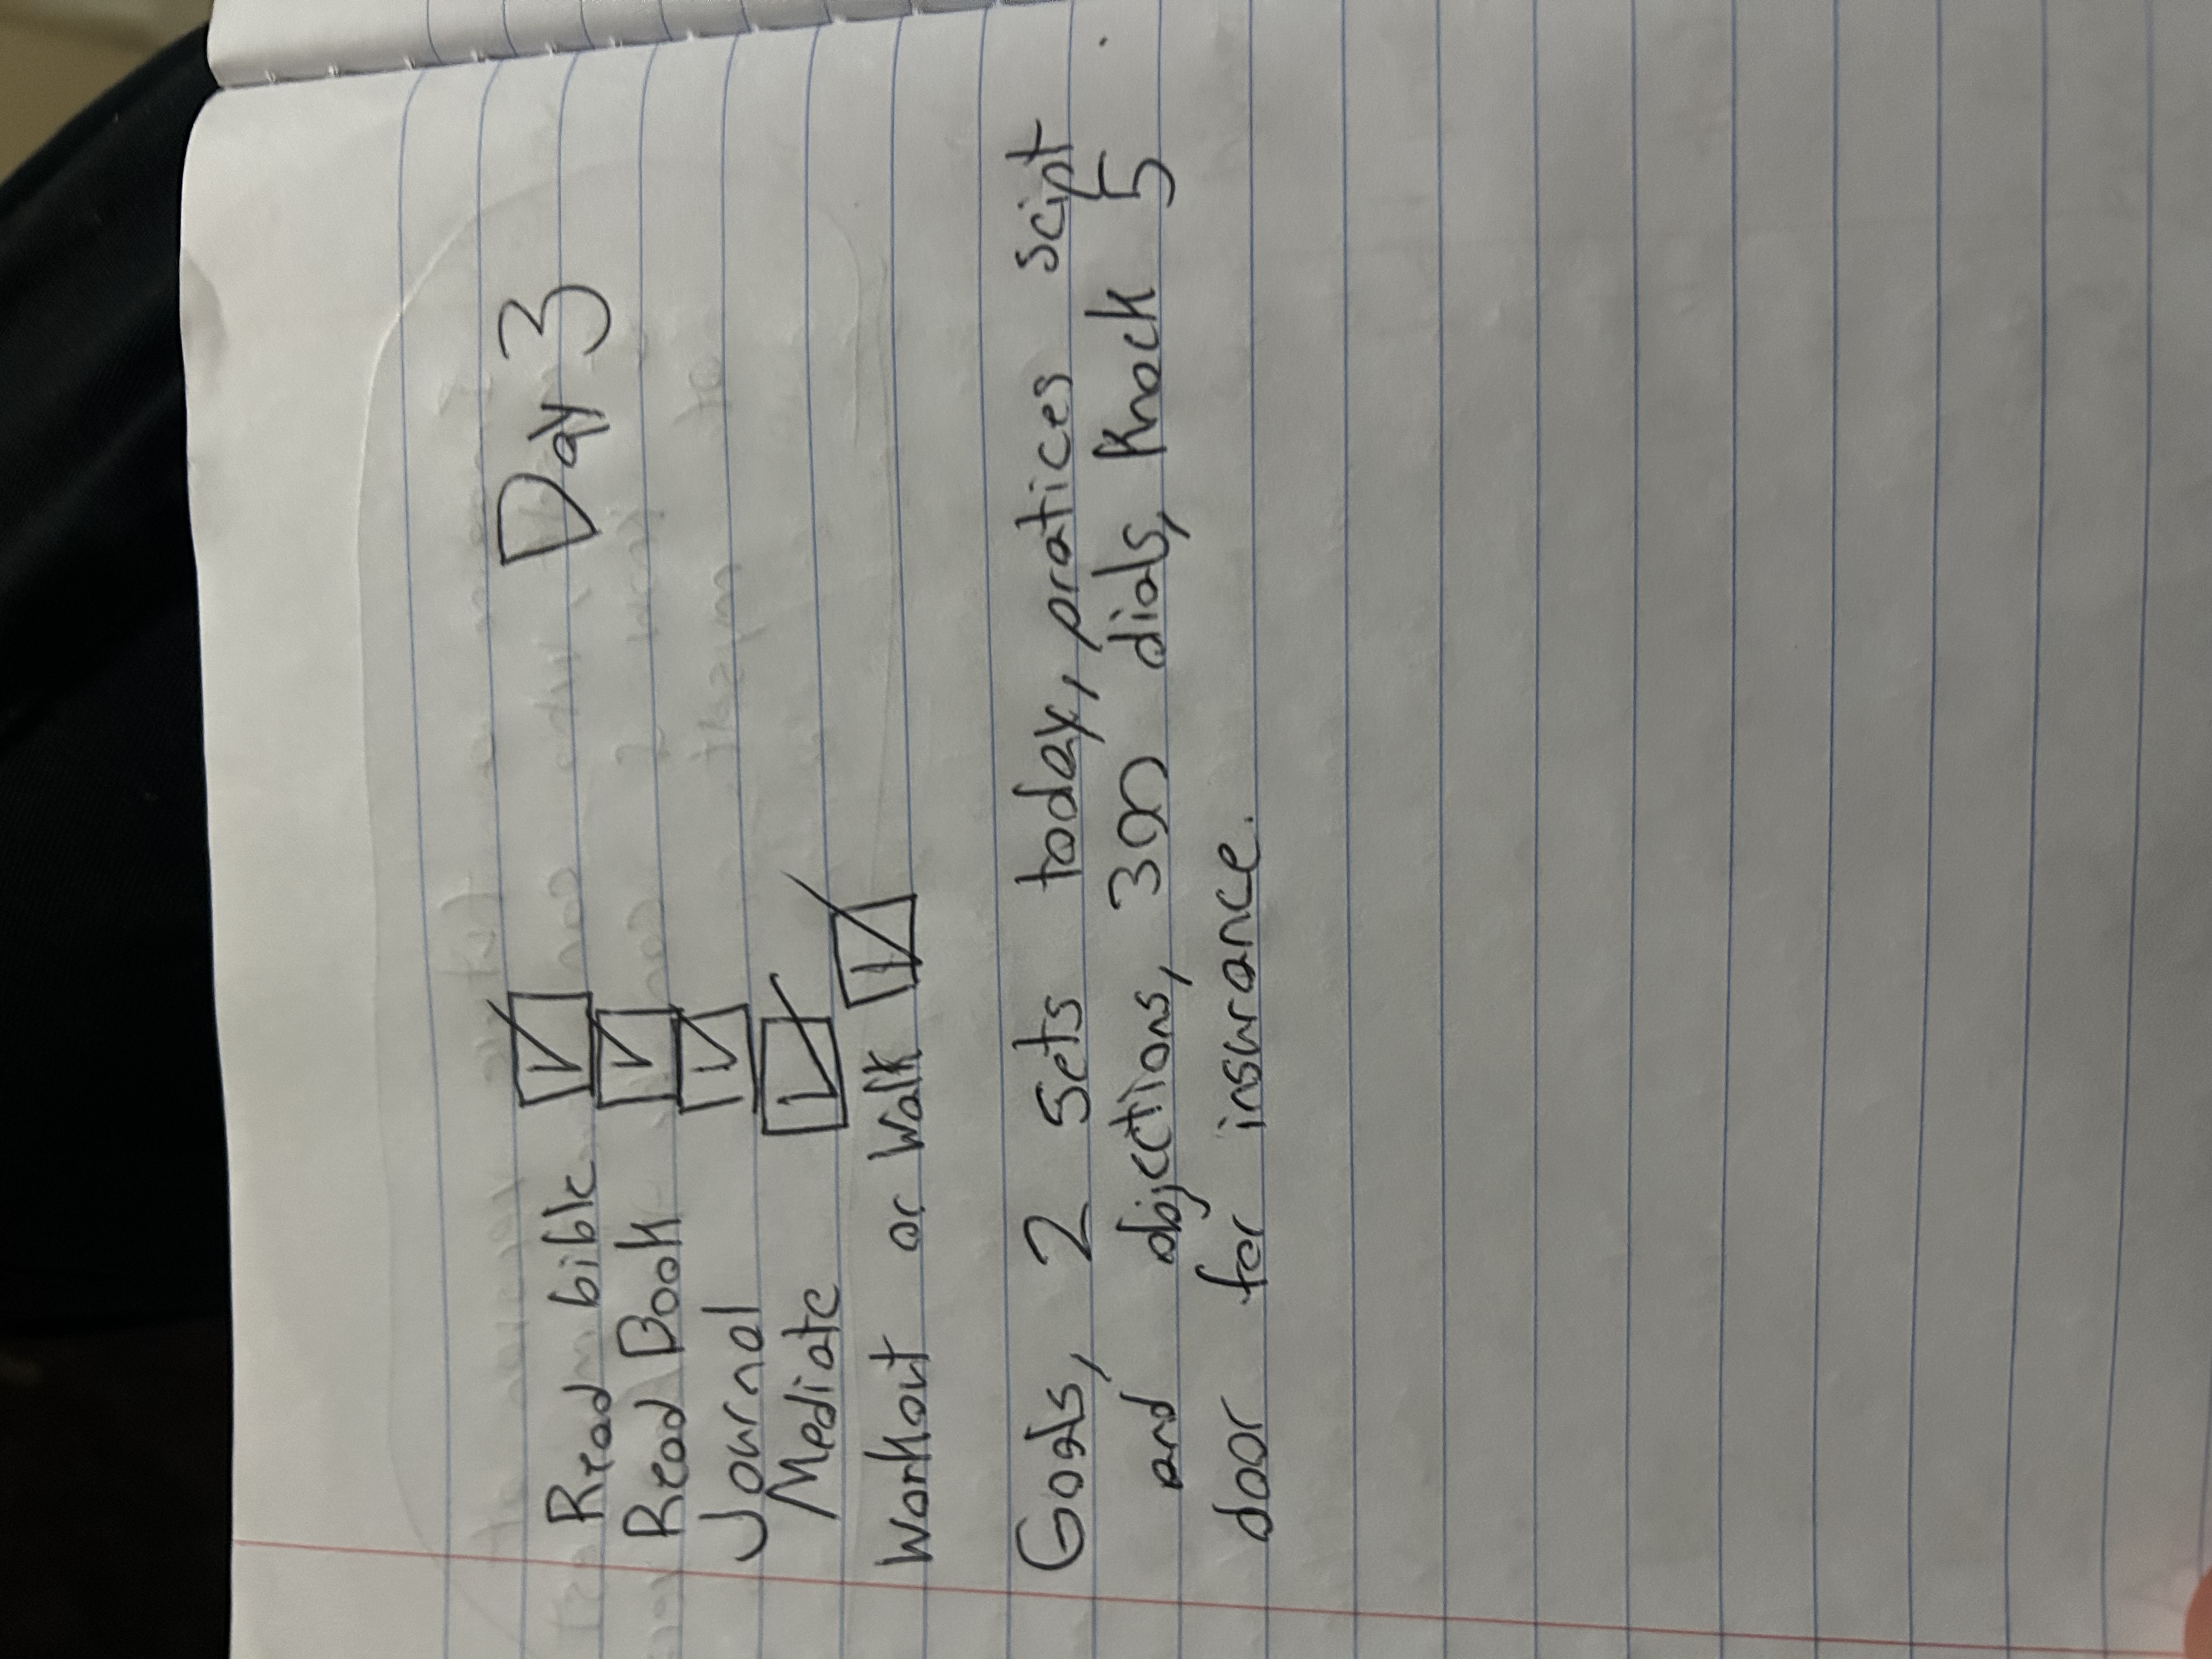 Day 3
Read bible ☑
Read Book ☑
Journal ☑
Mediate ☑
Workout or Walk ☑
Goals, 2 sets today, pratices scipt
and objections, 300 dials, Knock 5
door for insurance.